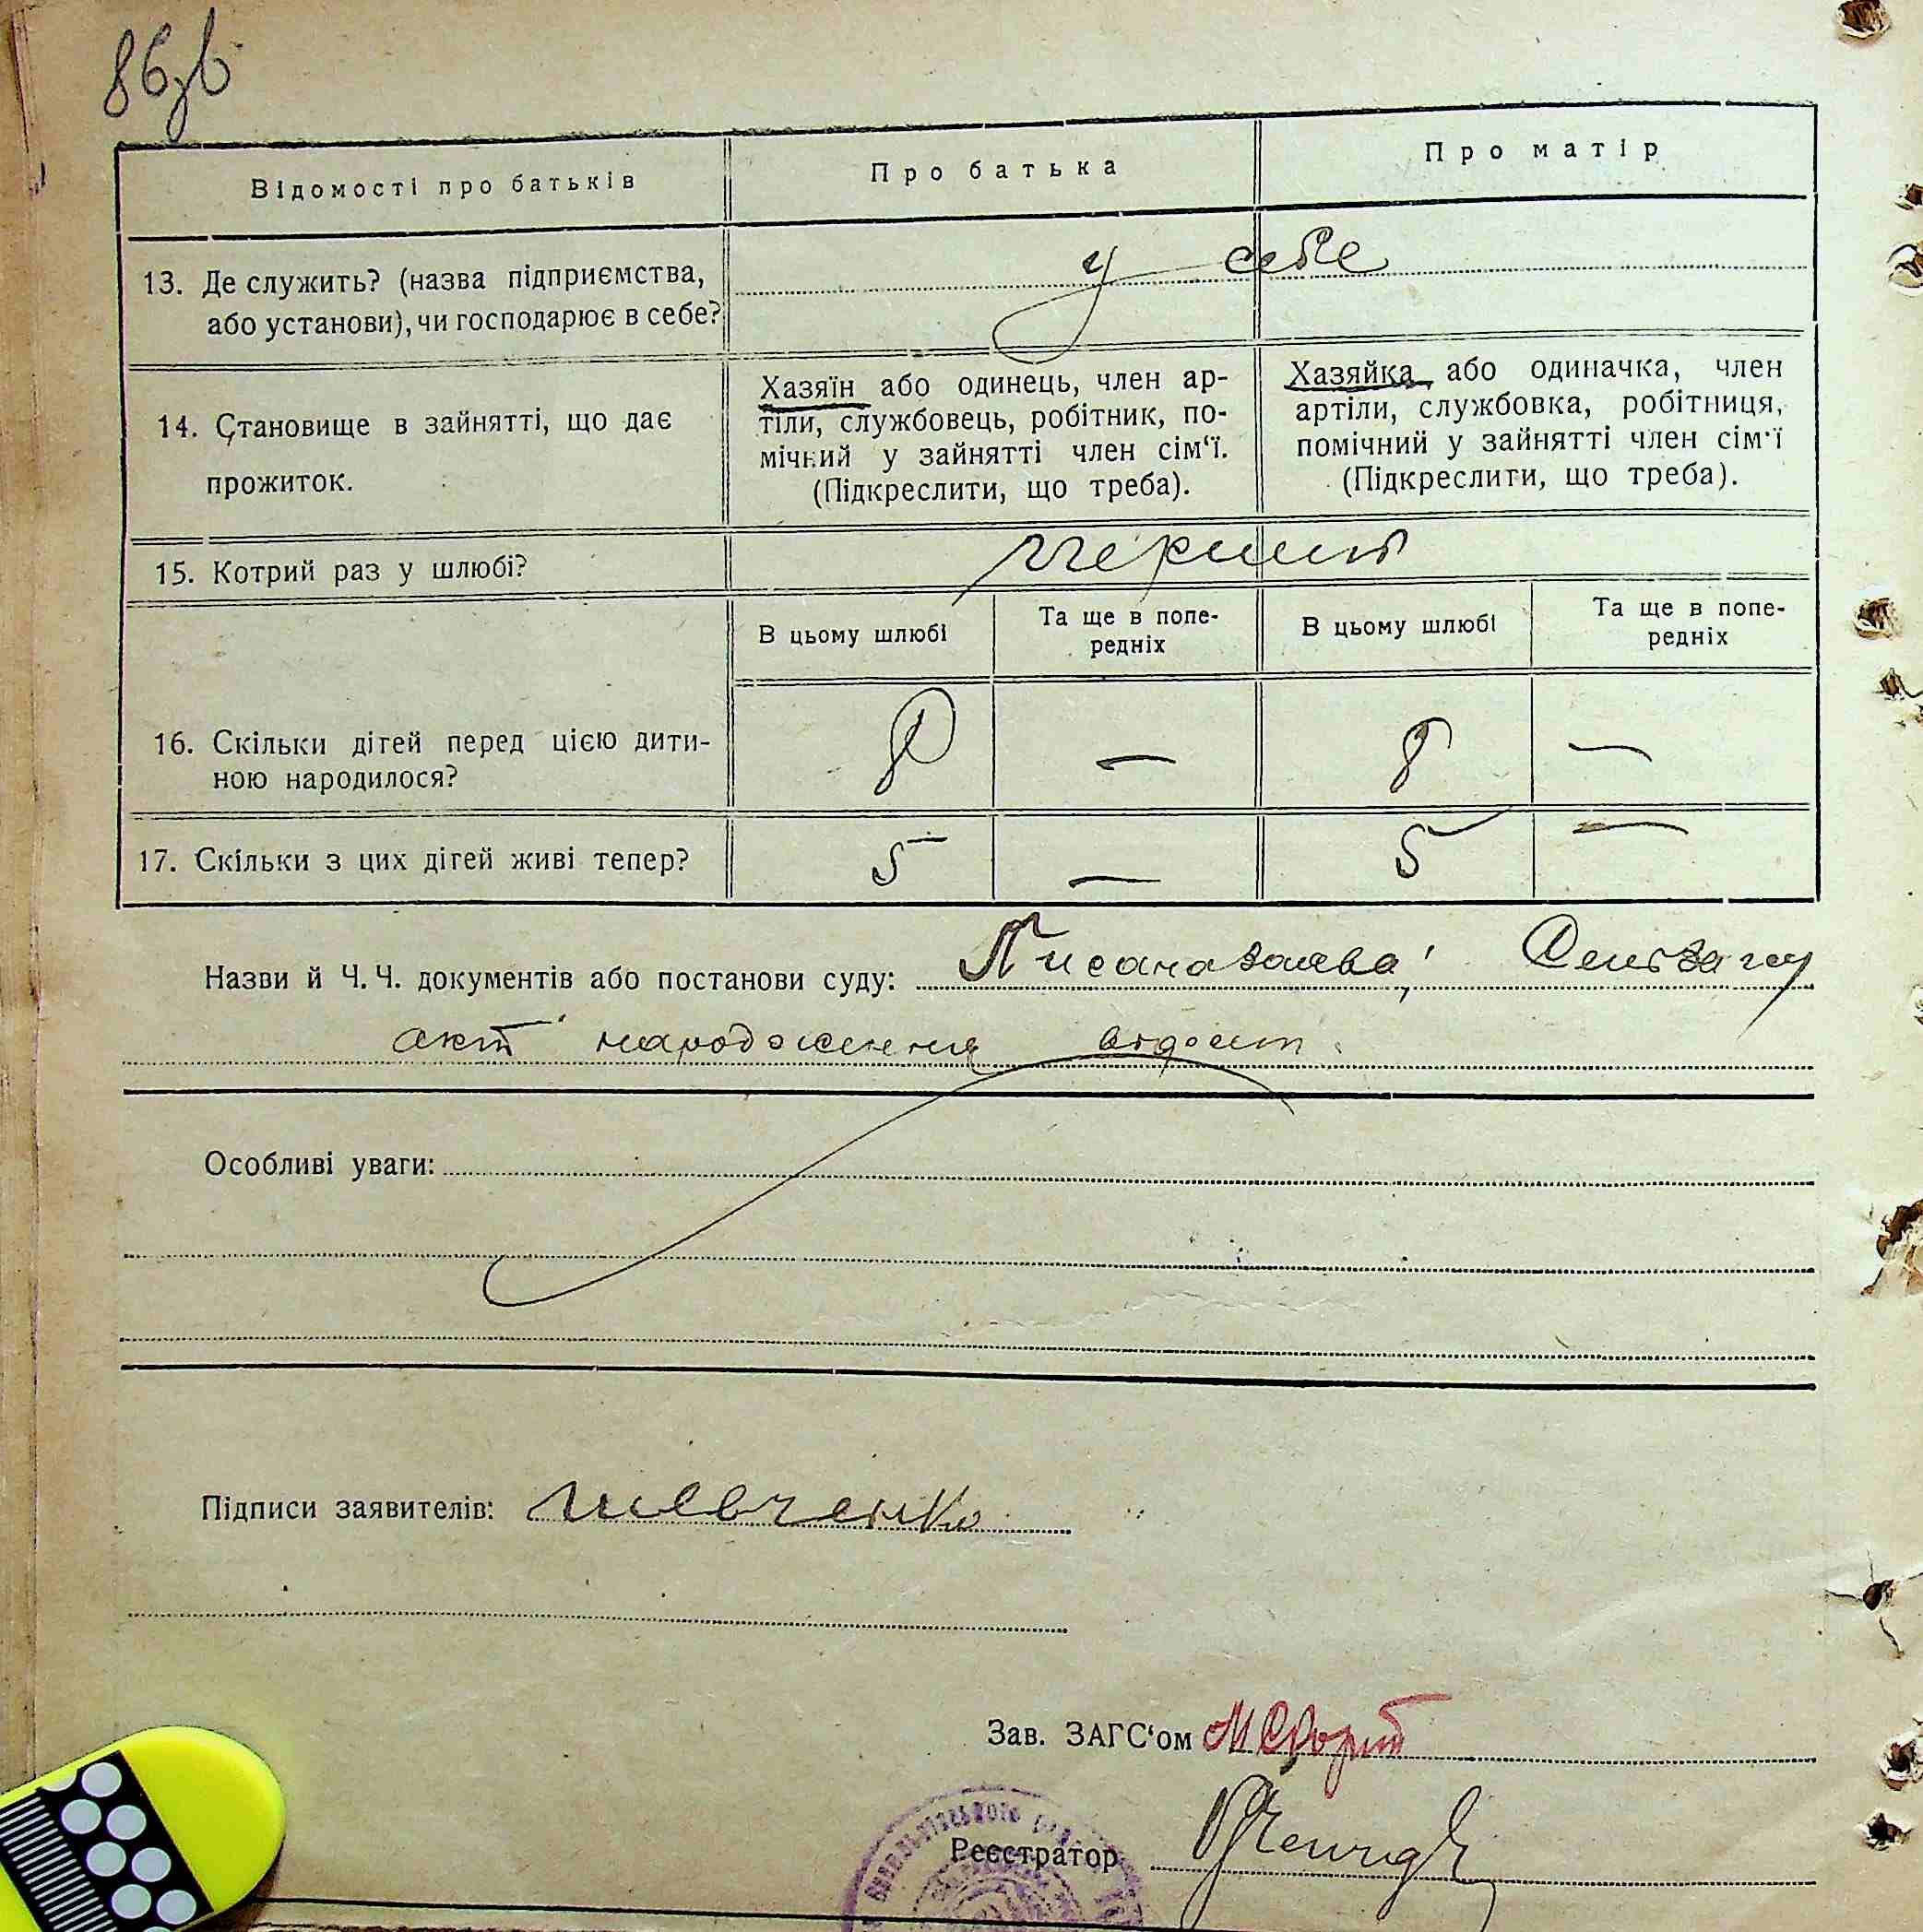 86зв
Відомості про батьків
Про батька
Про матір
13. Де служить? (назва підприємства,
або установи), чи господарює в себе?
у себе
14. Становище в зайнятті, що дає
прожиток.
Хазяїн або одинець, член ар-
тіли, службовець, робітник, по-
мічний у зайнятті член сім‘ї.
(Підкреслити, що треба).
Хазяйка або одиначка, член
артіли, службовка, робітниця,
помічний у зайнятті член сім‘ї
(Підкреслити, що треба).
15. Котрий раз у шлюбі?
перший
В цьому шлюбі
Та ще в попе-
редніх
В цьому шлюбі
Та ще в попе-
редніх
16. Скільки дітей перед цією дити-
ною народилося?
8 — 8 —
17. Скільки з цих дітей живі тепер?
5 — 5 —
Назви й Ч. Ч. документів або постанови суду: Писана заява,
акт народження
Особливі уваги:
Підписи заявителів: Шевченко
Зав. ЗАГС‘ом
Реєстратор